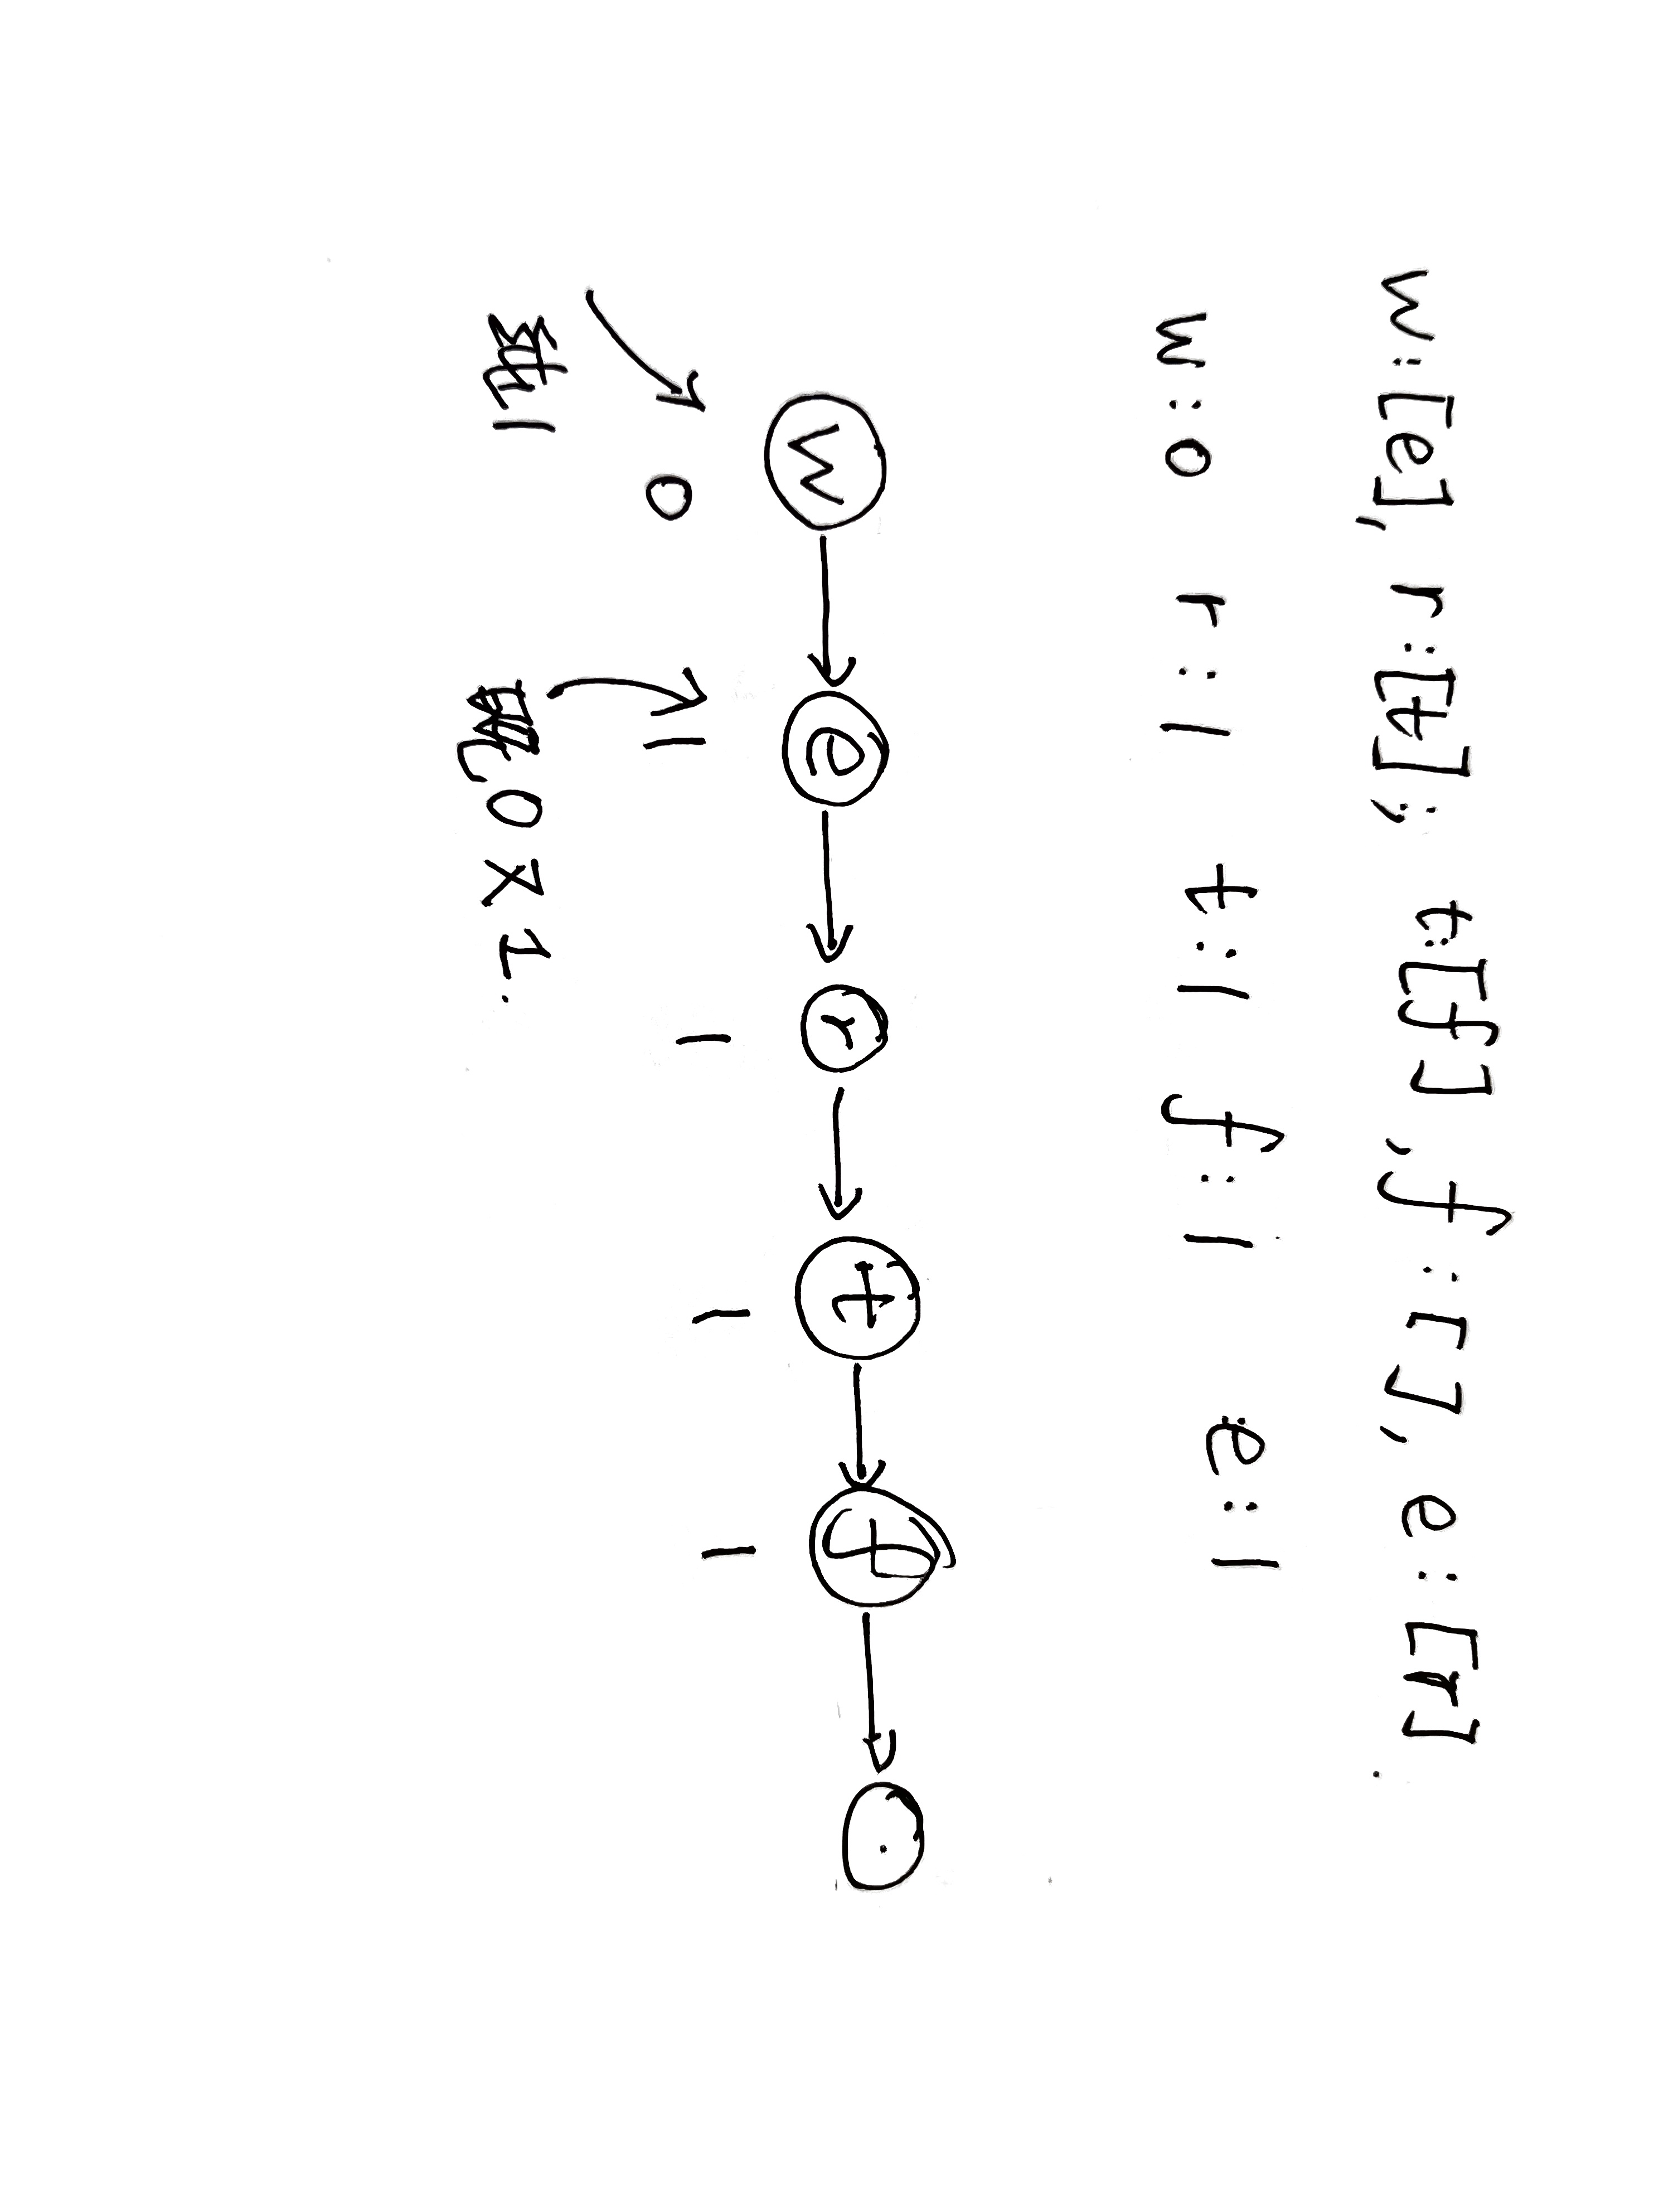 w:[e], r:[t], t:[f], f:[], e:[r].
w:0 r:1 t:1 f:1 e:1
w e r t f .
0 1 1 1 1
1 0 X 1.